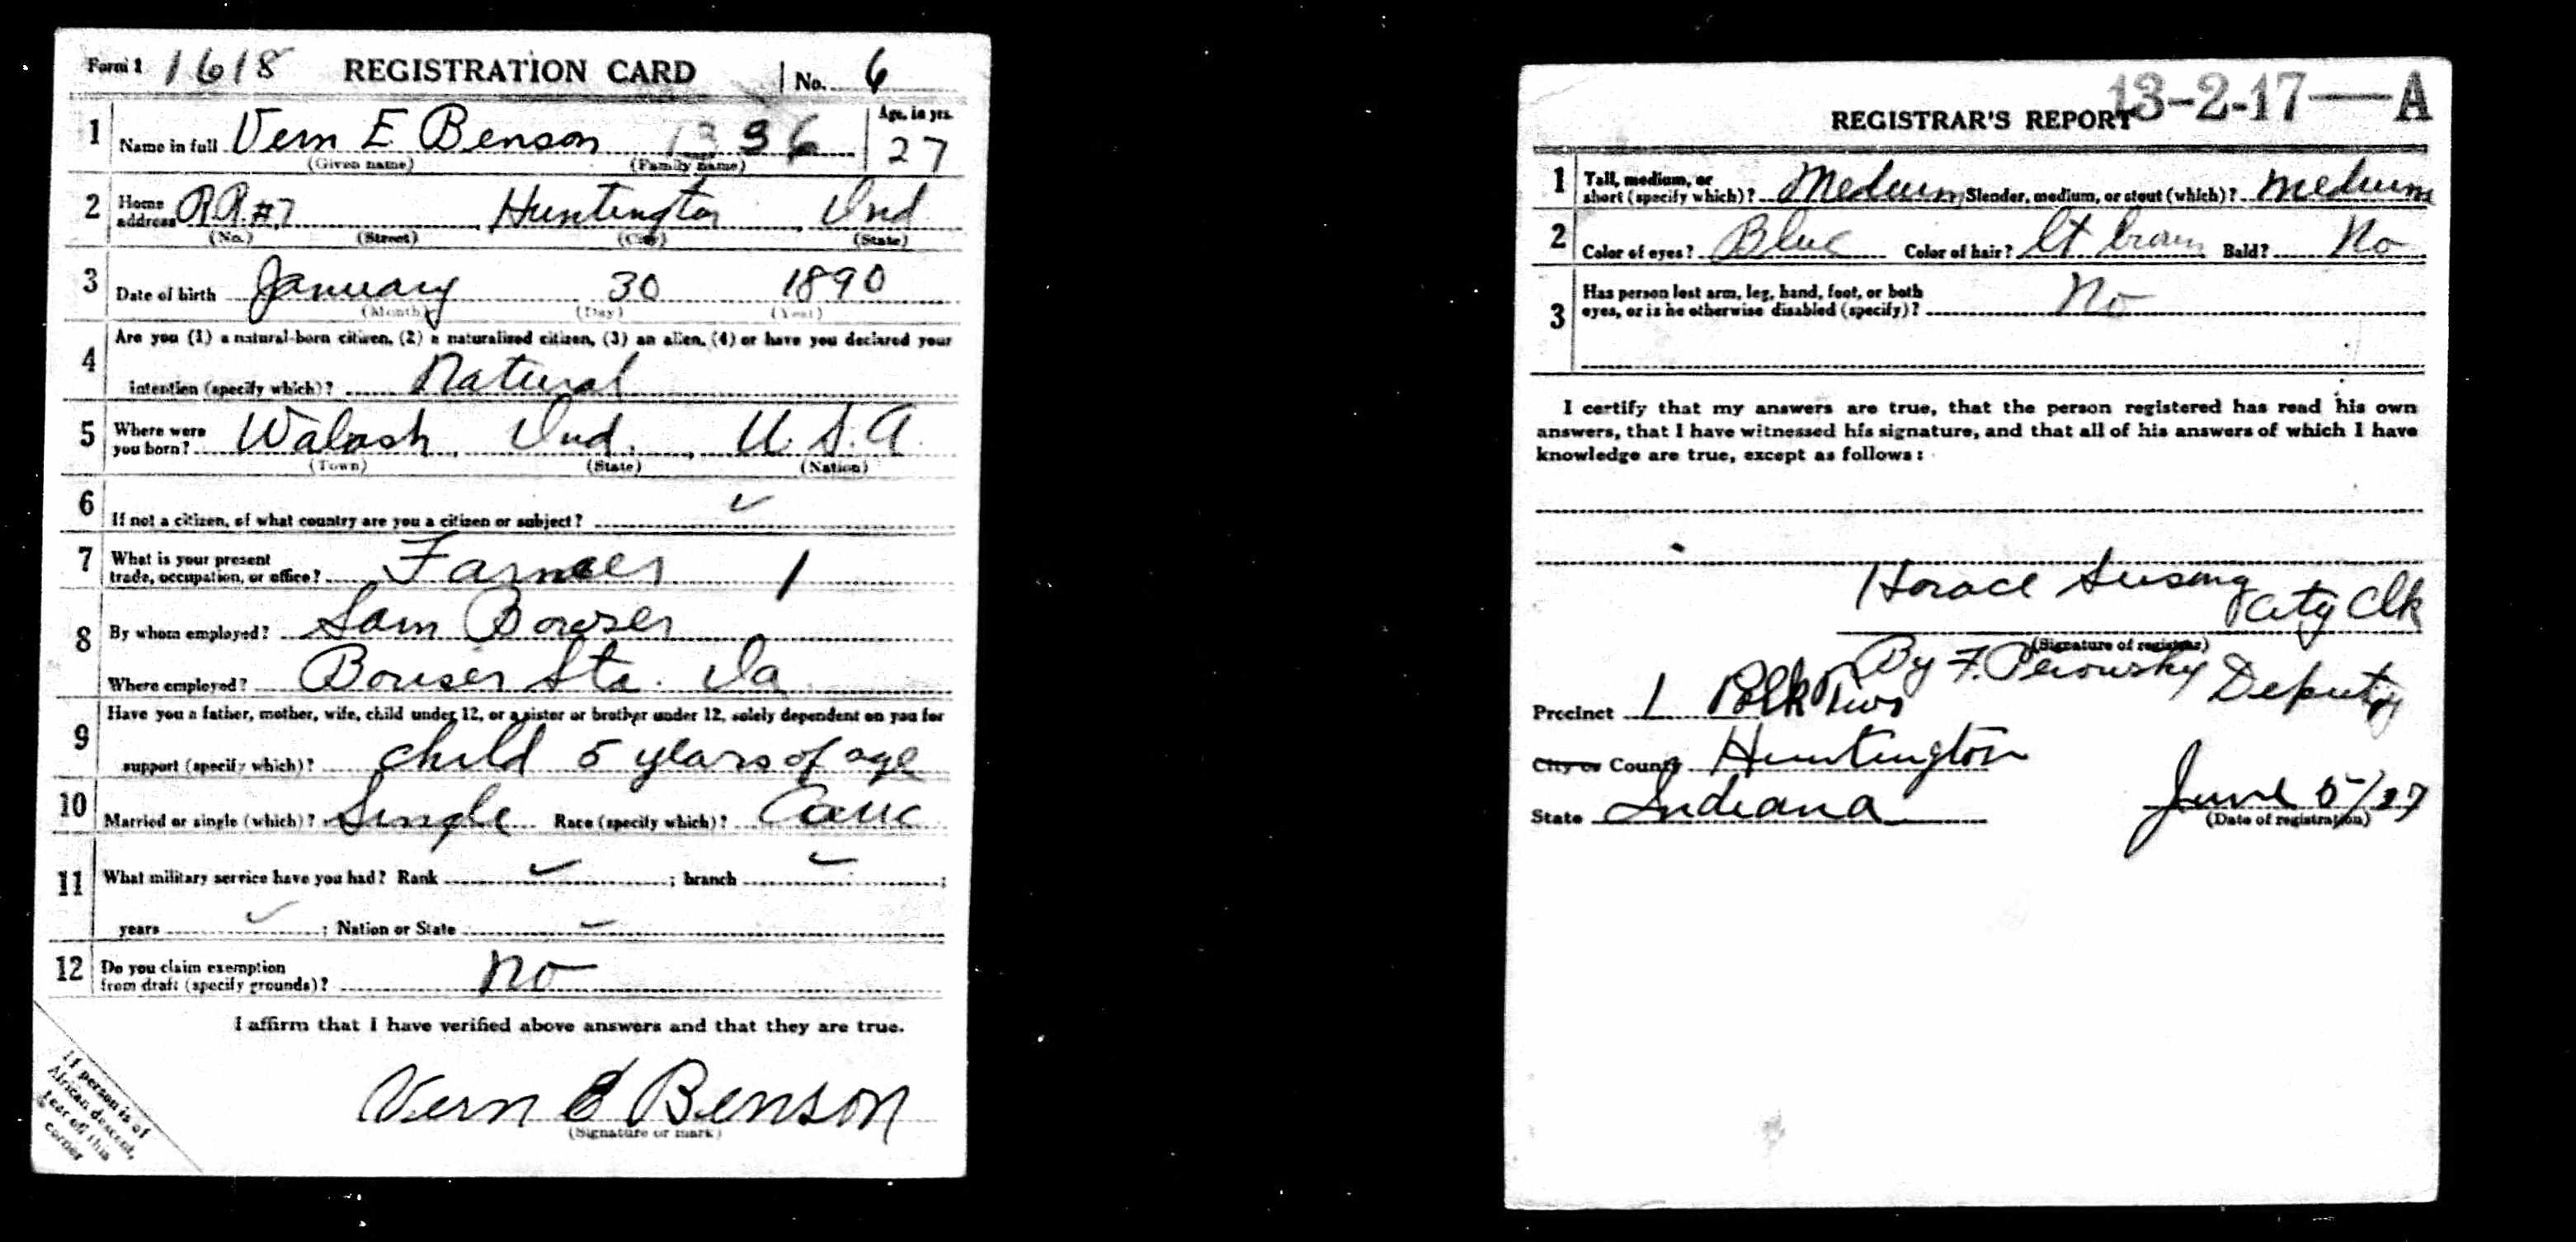 Form 1 1618 REGISTRATION CARD No. 6
1 Name in full Vern E Benson 1336 Age, in yrs. 27
(Given name) (Family name)
2 Home address R.R. #7 Huntington Ind
(No.) (Street) (City) (State)
3 Date of birth January 30 1890
(Month) (Day) (Year)
4 Are you (1) a natural-born citizen, (2) a naturalized citizen, (3) an alien, (4) or have you declared your
intention (specify which)? Natural
5 Where were you born? Wabash Ind. U.S.A.
(Town) (State) (Nation)
6 If not a citizen, of what country are you a citizen or subject? ✓
7 What is your present trade, occupation, or office? Farmer 1
8 By whom employed? Sam Bowser
Where employed? Bowser Sta.
9 Have you a father, mother, wife, child under 12, or a sister or brother under 12, solely dependent on you for
support (specify which)? child 5 years of age
10 Married or single (which)? Single Race (specify which)? Cauc
11 What military service have you had? Rank ✓ ; branch ✓ ;
years ✓ ; Nation or State ✓
12 Do you claim exemption from draft (specify grounds)? No
I affirm that I have verified above answers and that they are true.
Vern E Benson
(Signature or mark)
If person is of
African descent,
tear off this
corner
13-2-17—A
REGISTRAR'S REPORT
1 Tall, medium, or short (specify which)? Medium Slender, medium, or stout (which)? Medium
2 Color of eyes? Blue Color of hair? Lt brown Bald? No
3 Has person lost arm, leg, hand, foot, or both
eyes, or is he otherwise disabled (specify)? No
I certify that my answers are true, that the person registered has read his own
answers, that I have witnessed his signature, and that all of his answers of which I have
knowledge are true, except as follows:
Horace City Clk
(Signature of registrar)
By F. Deputy
Precinct 1 Polk Twp
City or County Huntington
State Indiana June 5/17
(Date of registration)